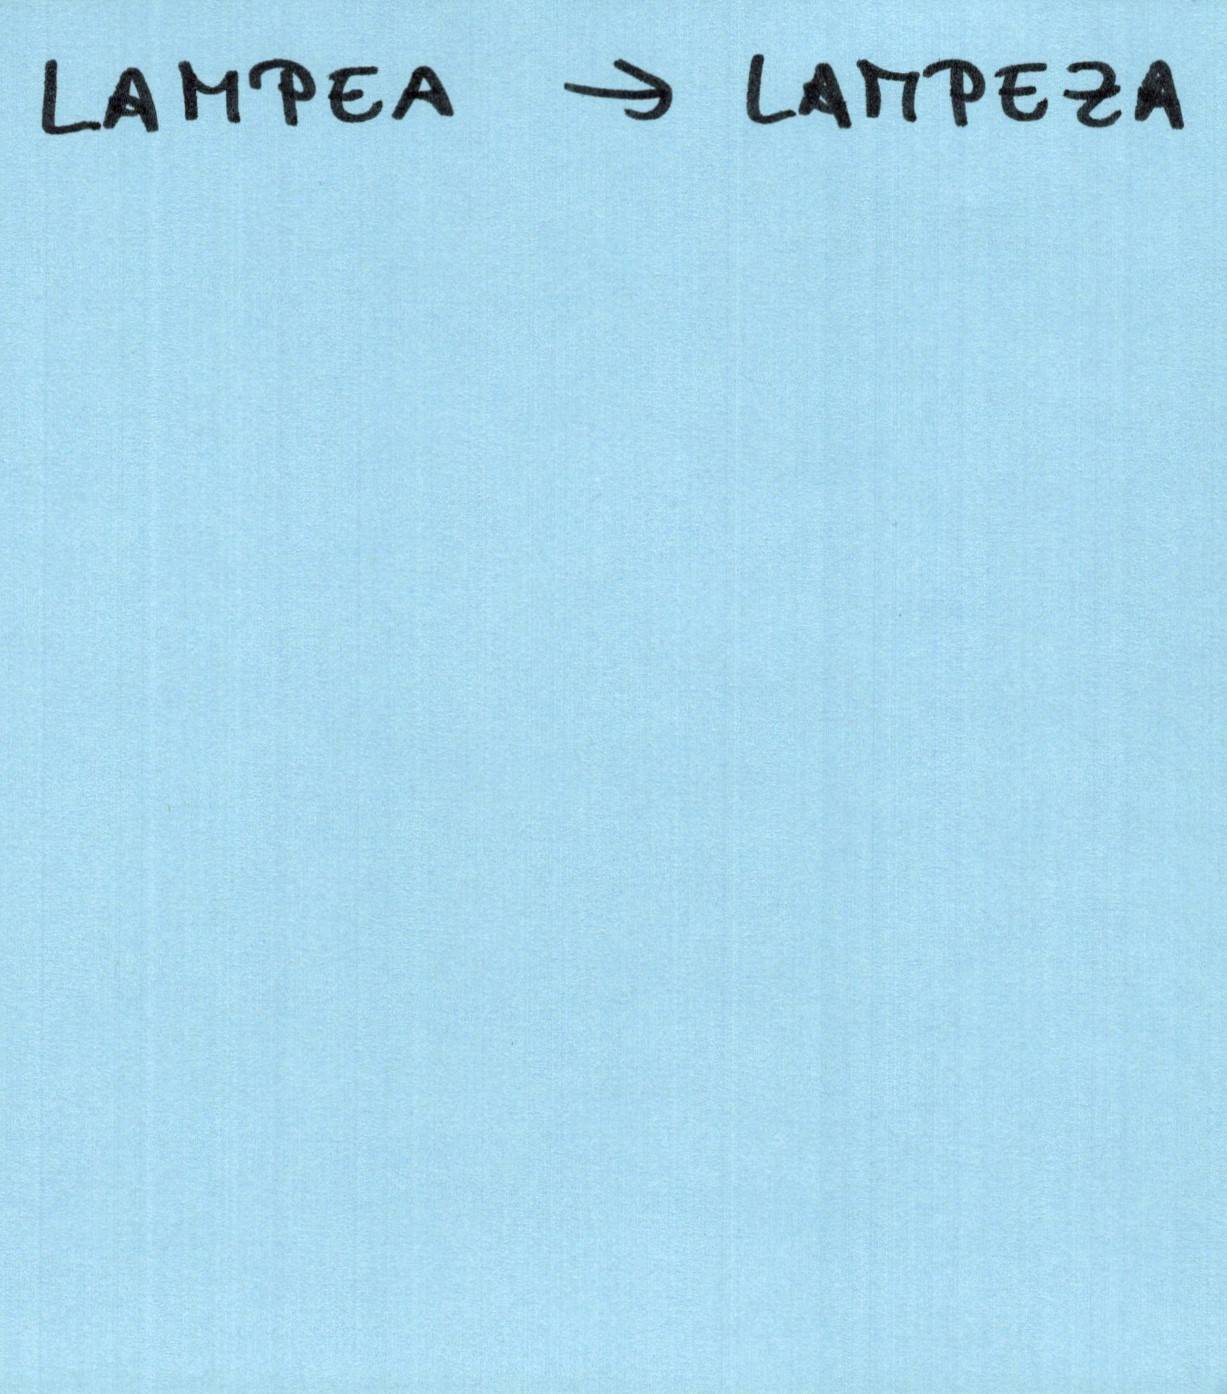 LAMPEA → LAMPEZA